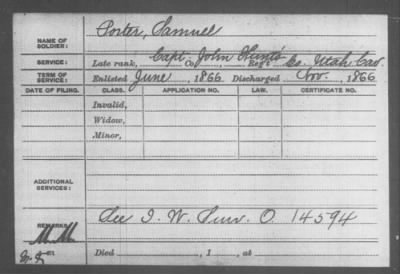 NAME OF SOLDIER: Porter, Samuel
SERVICE: Late rank, Capt. John Hunt's Co. Utah Cav.
Co. Reg't
TERM OF SERVICE: Enlisted June, 1866 Discharged Nov., 1866
DATE OF FILING. CLASS. APPLICATION NO. LAW. CERTIFICATE NO.
Invalid,
Widow,
Minor,
ADDITIONAL SERVICES:
REMARKS: See I. W. Surv. O. 14594
M M
Died , 1 , at